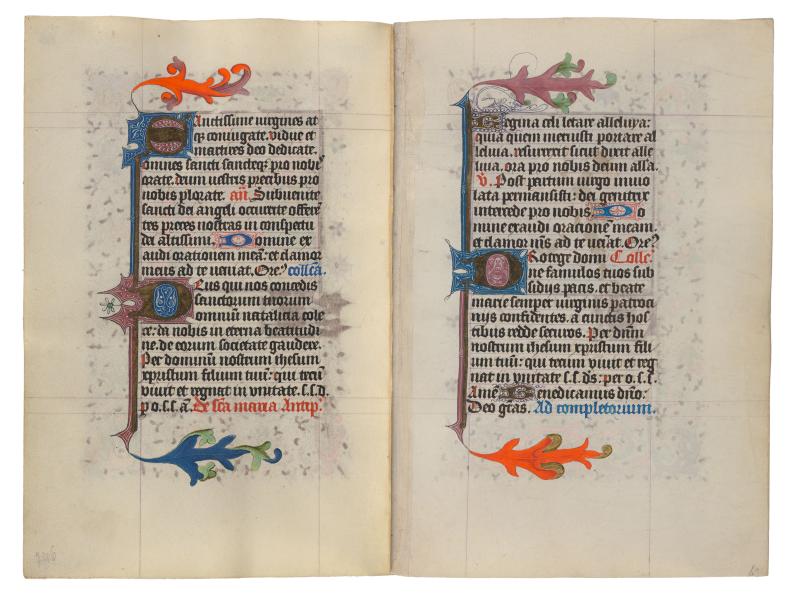 Sanctissime uirgines at
q3 coniugate. uidue et
martires deo dedicate.
omnes sancti sancteq3 pro nobis
orate. deum uestris precibus pro
nobis plorate. an̄. Subuenite
sancti dei angeli occurrite offerē
tes preces nostras in conspectu
dei altissimi. Domine ex
audi orationem meā: et clamor
meus ad te ueniat. Ore⁹. collcā.
Deus qui nos concedis
sanctorum tuorum
omniū natalicia cole
re: da nobis in eterna beatitudi
ne. de eorum societate gaudere.
Per dominū nostrum ihesum
xpristum filium tuū: qui tecū
uiuit et regnat in vnitate. s. s. d.
p o. s. s. a̅. De sca̅ maria Antip⁹.
Regina celi letare alleluya:
quia quem meruisti portare al
leluia. resurrexit sicut dixit alle
luia. ora pro nobis deum alla̅.
v̄. Post partum uirgo inuio
lata permansisti: dei genitrix
intercede pro nobis Do
mine exaudi oracione̅ meam.
et clamor m̅s ad te ueiat. Ore⁹.
Protege domi Colle⁹.
ne famulos tuos sub
sidijs pacis. et beate
marie semper uirginis patroci
nijs confidentes. a cunctis hos
tibus redde securos. Per dn̅m
nostrum ihesum xpristum fili
um tuū: qui tecum uiuit et reg
nat in vnitate s. s. ds̅: per o. s. s.
Ame̅ Benedicamus dn̅o.
Deo gr̅as. Ad completorium.